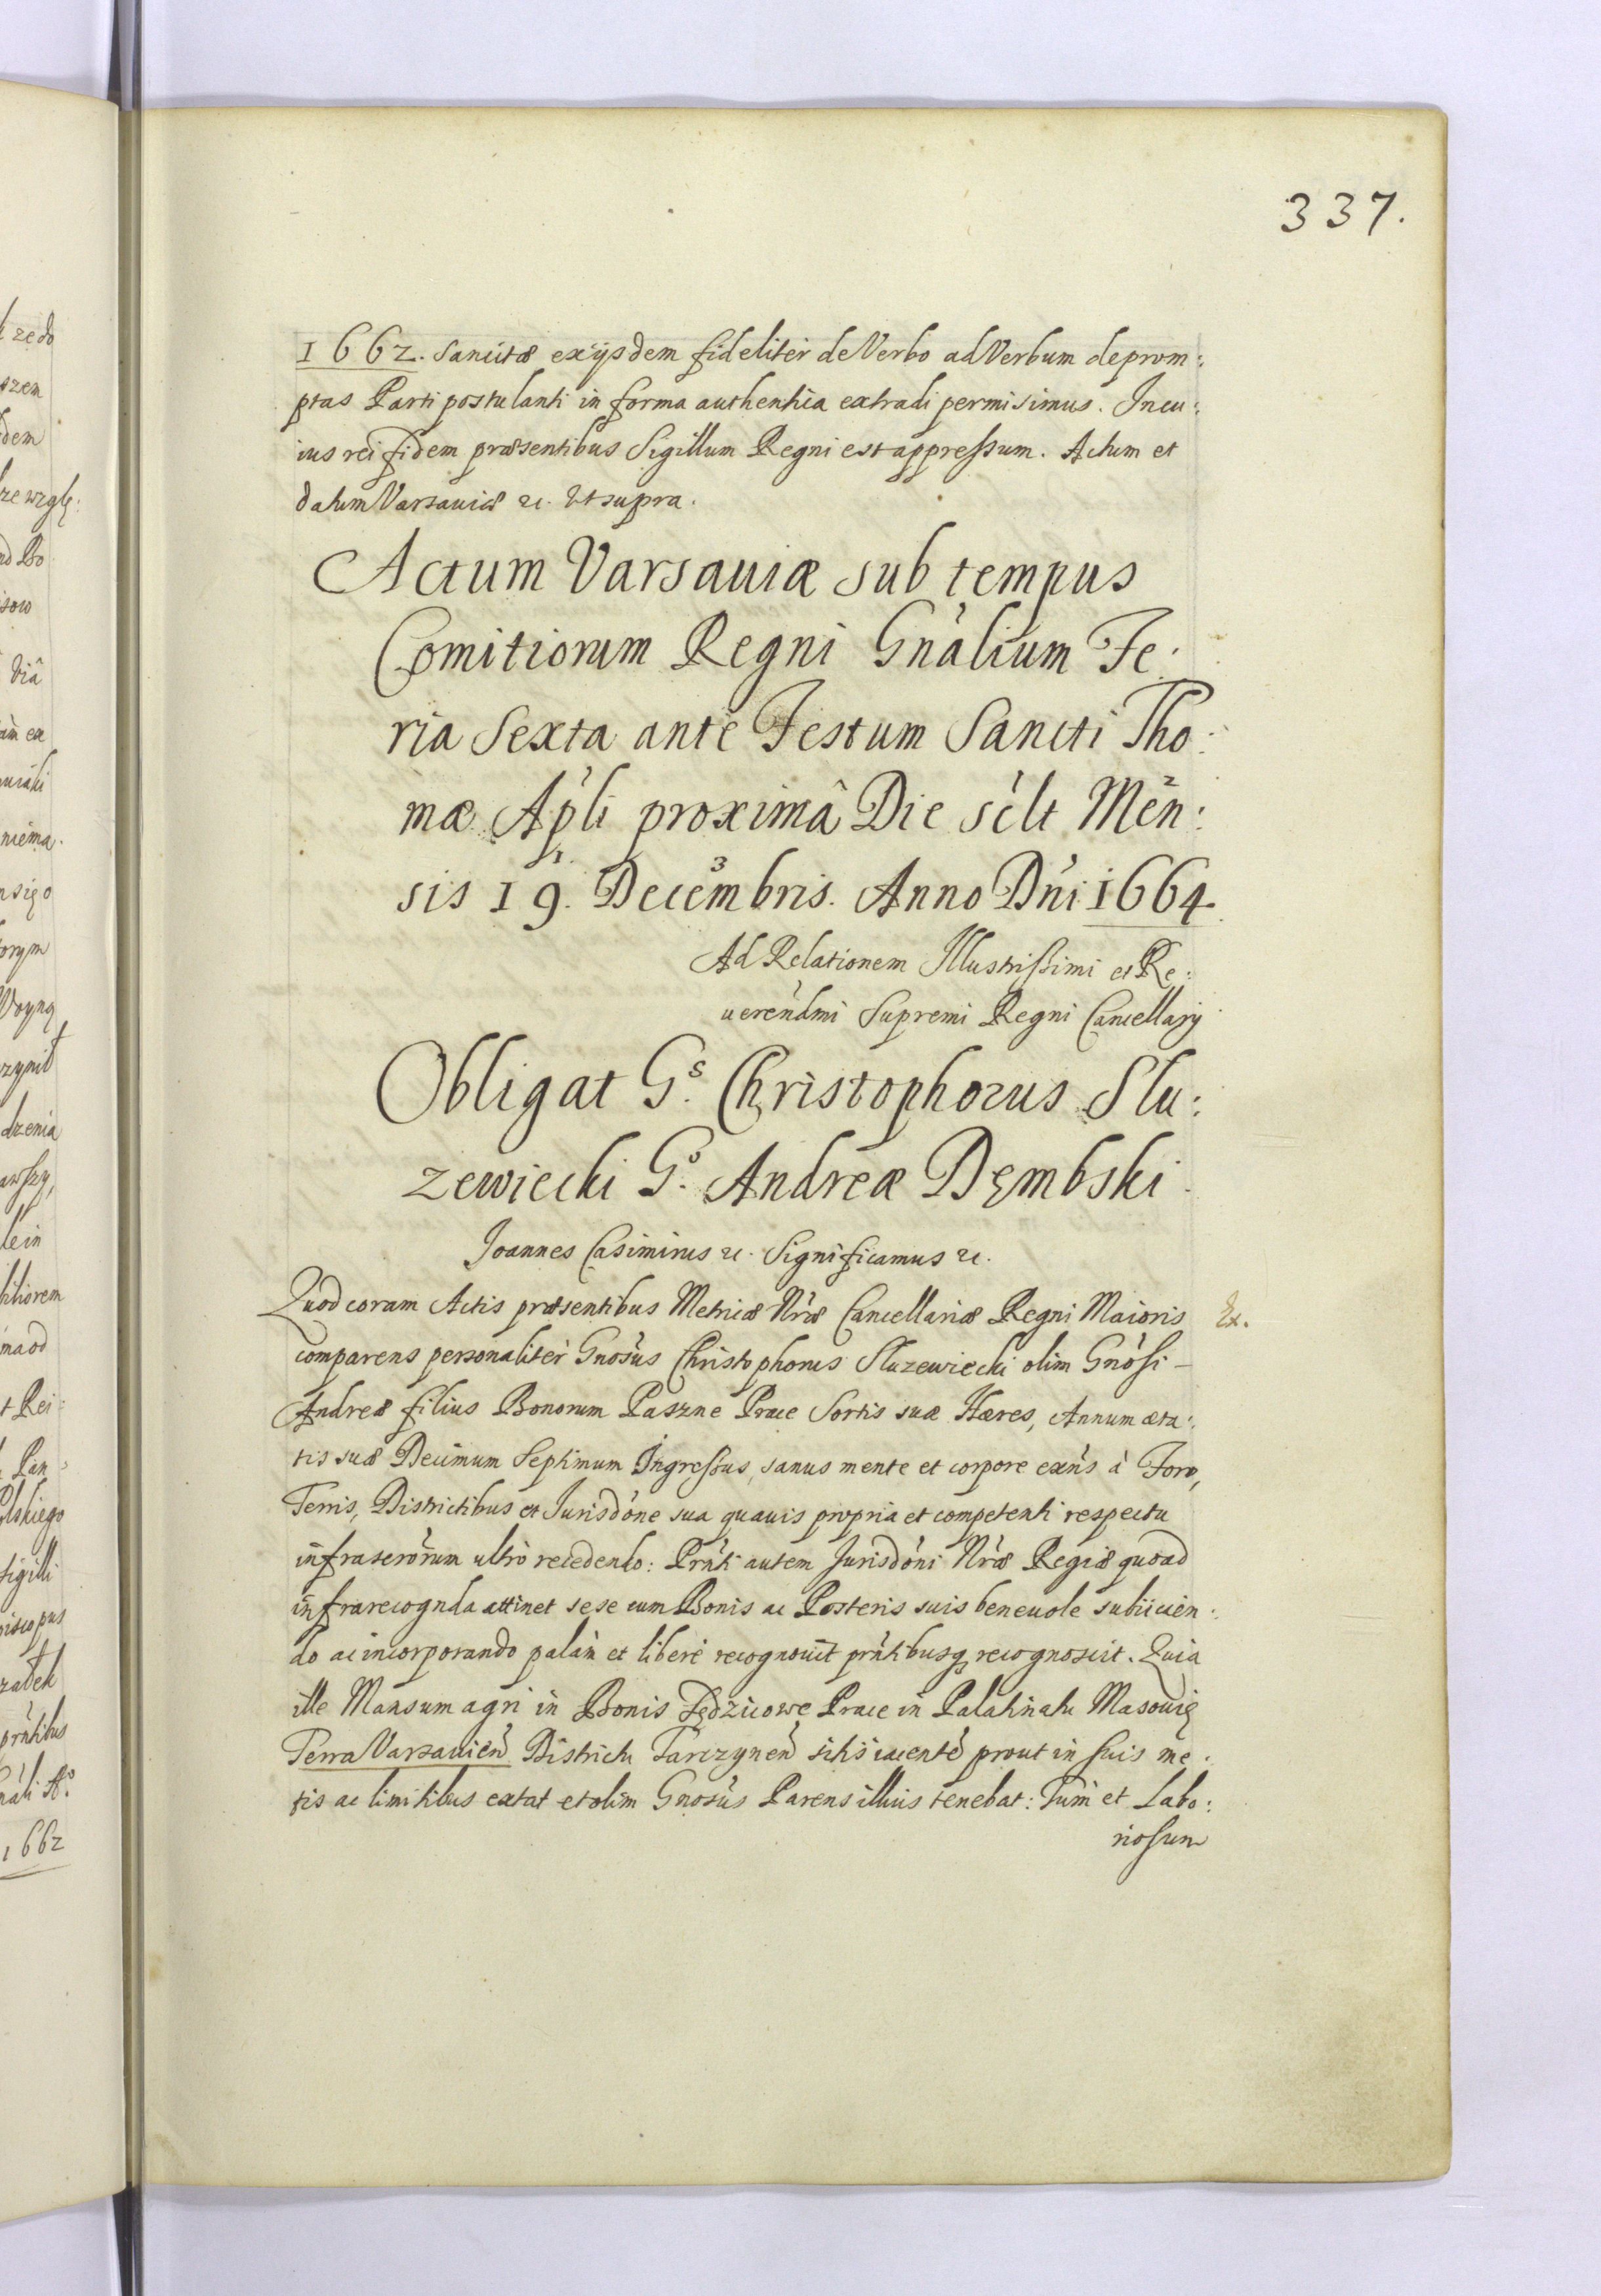 337.
1662. Sancitæ ex ijsdem fideliter de Verbo ad Verbum deprom:
ptas Parti postulanti in forma authentica extradi permisimus. In cu:
ius rei fidem præsentibus Sigillum Regni est appreſsum. Actum et
datum Varsauiæ ꝛc. Vt supra.
Actum Varsauiæ sub tempus
Comitiorum Regni Gn̄alium Fe:
ria Sexta ante Festum Sancti Tho:
mæ Ap̄li proximâ Die sc̄lt Men̄:
sis 19. Decembris. Anno Dn̄i 1664.
Ad Relationem Illustriſsimi et Re:
uerendmi Supremi Regni Cancellarij
Obligat Gs. Christophorus Slu:
zewiecki Go. Andreæ Dęmbski
Joannes Casimirus ꝛc. Significamus ꝛc.
Quod coram Actis præsentibus Metricæ Nr̄æ Cancellariæ Regni Maioris
Ex.
comparens personaliter Gnosus Christophorus Sluzewiecki olim Gnosi
Andreæ filius Bonorum Paszne Prace Sortis suæ Hæres, Annum æta:
tis suæ Decimum Septimum Ingreſsus, sanus mente et corpore exn̄s à Foro,
Terris, Districtibus et Jurisdōne sua quauis propria et competenti respectu
infrascrōrum ultrò recedendo: Prn̄ti autem Jurisdōni Nr̄æ Regiæ quoad
infrarecognda attinet sese cum Bonis ac Posteris suis beneuole subiicien:
do ac incorporando palàm et liberè recognouit prn̄tibusq; recognoscit. Quia
ille Mansum agri in Bonis Prace in Palatinatu Masouię
Terra Varsauien̄ Districtu Tarczynen̄ sitis iacente prout in suis me:
tis ac limitibus extat et olim Gnosus Parens illius tenebat: Tum et Labo:
riosum